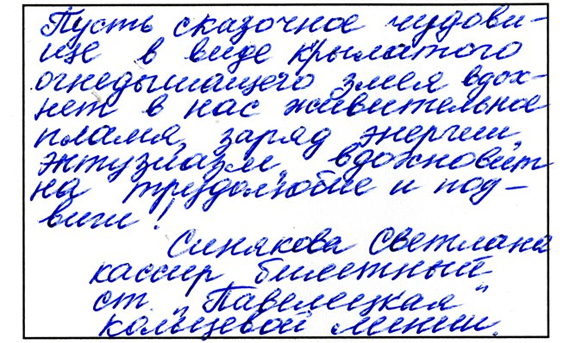 Пусть сказочное чудови-
ще в виде крылатого
огнедышащего змея вдох-
нет в нас живительное
пламя, заряд энергии,
энтузиазм, вдохновит
на трудолюбие и под-
виги!
Синякова Светлана
кассир билетный
ст. "Павелецкая"
кольцевой линии.